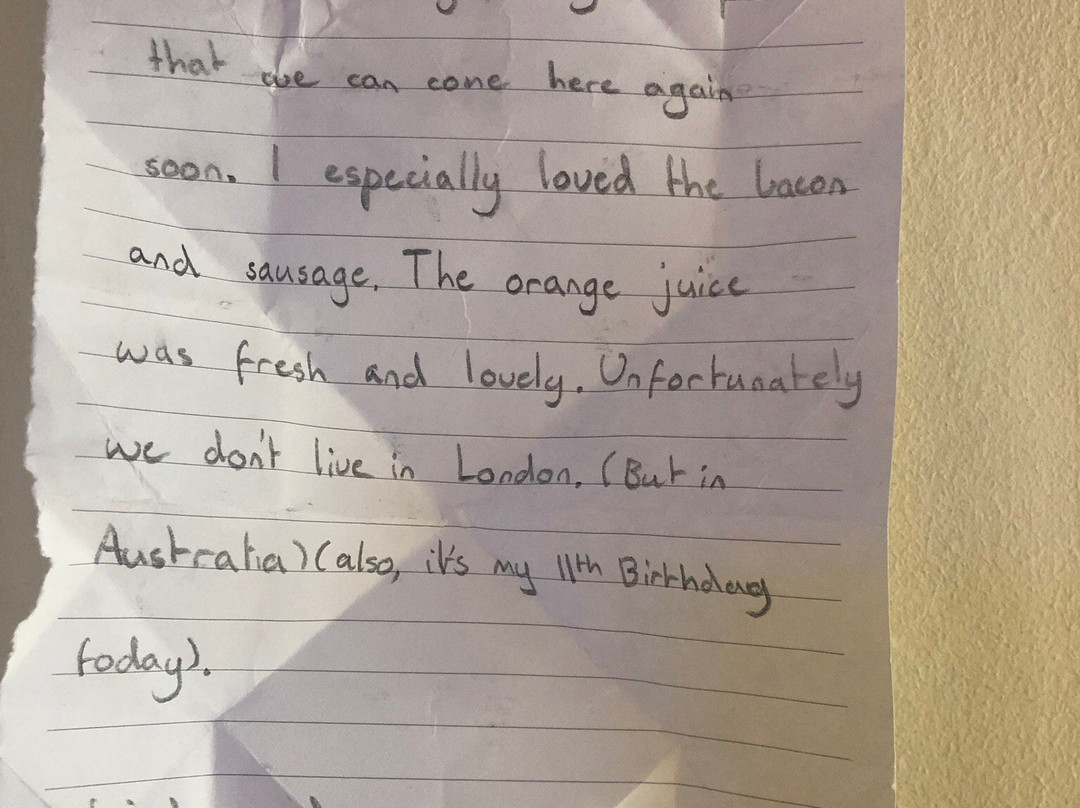 that we can come here again
soon. I especially loved the bacon
and sausage. The orange juice
was fresh and lovely. Unfortunately
we don't live in London. (But in
Australia) (also, it's my 11th Birthday
today).